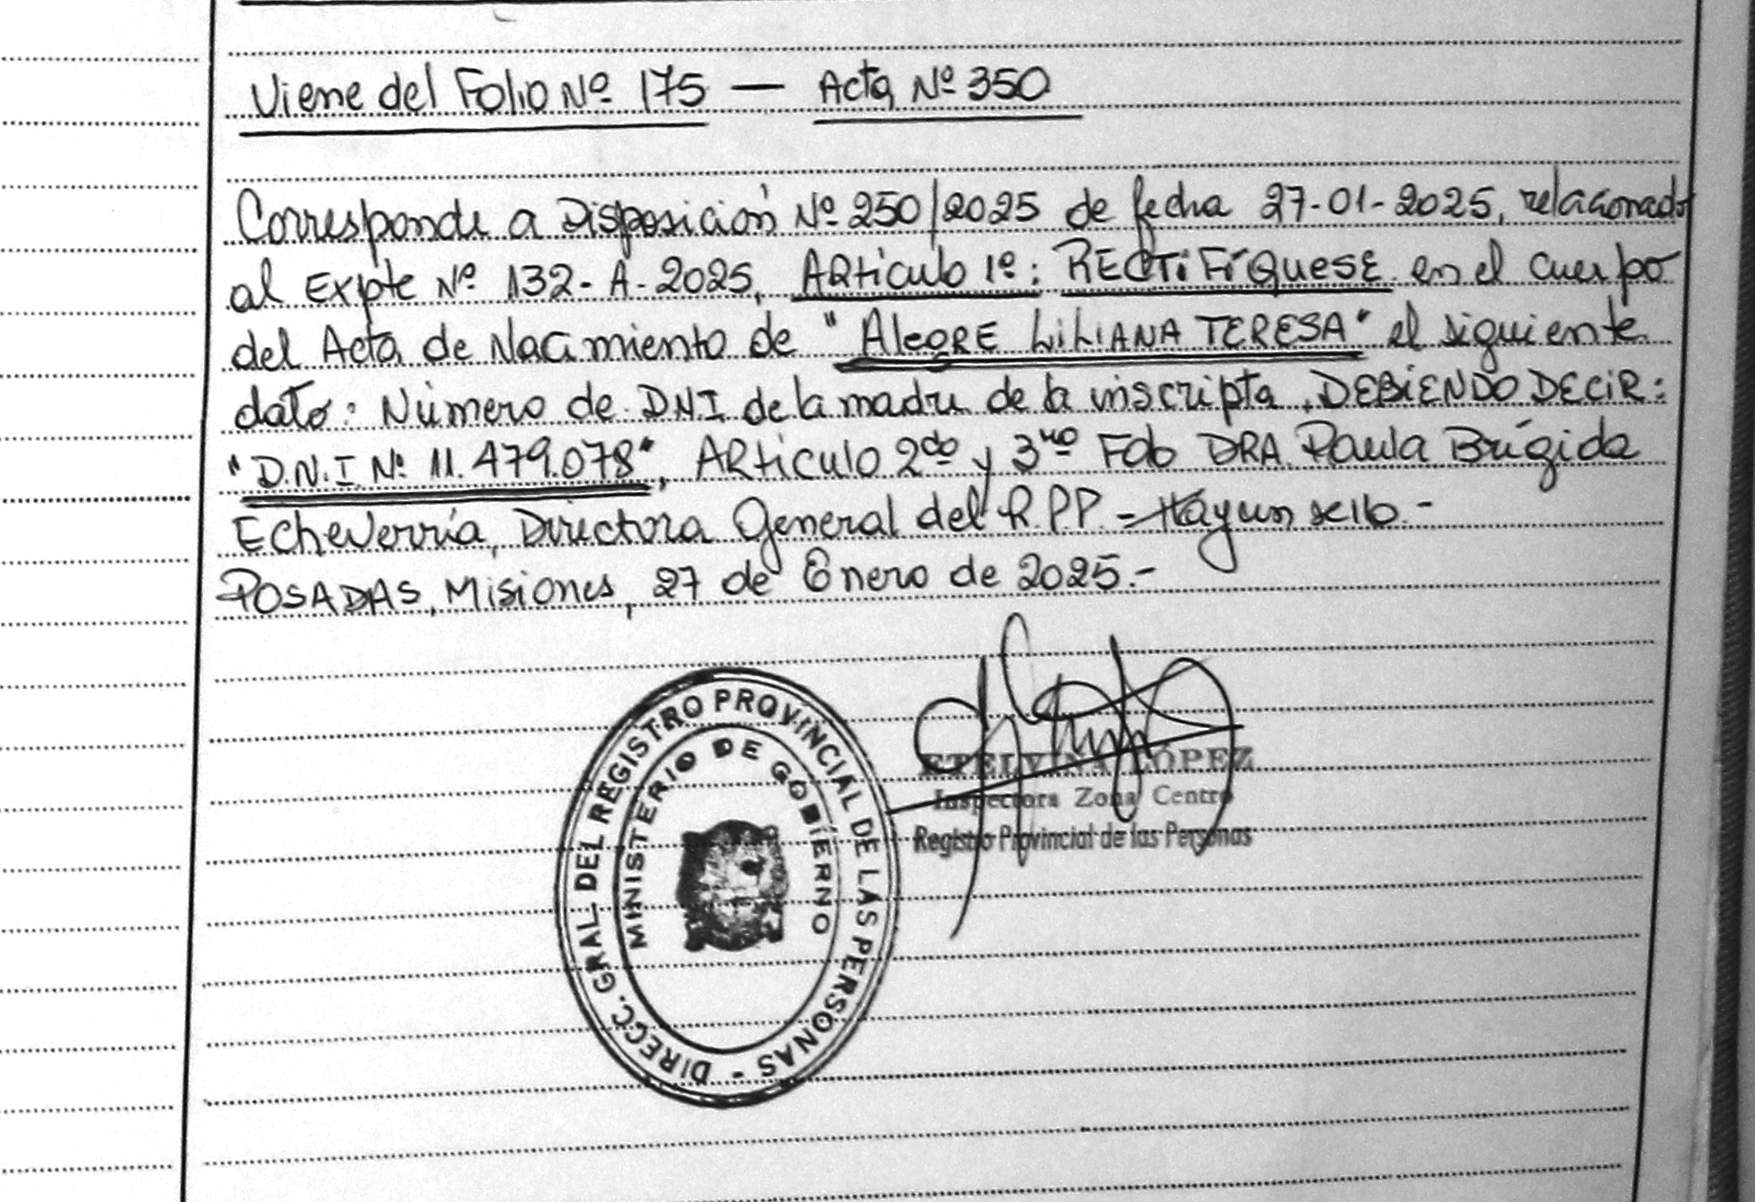 Viene del Folio Nº 175 — Acta Nº 350
Corresponde a Disposición Nº 250/2025 de fecha 27-01-2025, relacionado
al Expte Nº 132-A-2025, ARtículo 1º: RECTiFíQUESE en el cuerpo
del Acta de Nacimiento de "AlegRE LiLiANA TERESA" el siguiente
dato: Número de DNI de la madre de la inscripta, DEBIENDO DECIR:
"D.N.I Nº 11.479.078", ARtículo 2do y 3ro Fdo DRA Paula Brígida
Echeverría, Directora General del R.P.P - Hay un sello.-
POSADAS, Misiones, 27 de Enero de 2025.-
DIRECC. GRAL. DEL REGISTRO PROVINCIAL DE LAS PERSONAS -
MINISTERIO DE GOBIERNO
ETELVINA LÓPEZ
Inspectora Zona Centro
Registro Provincial de las Personas